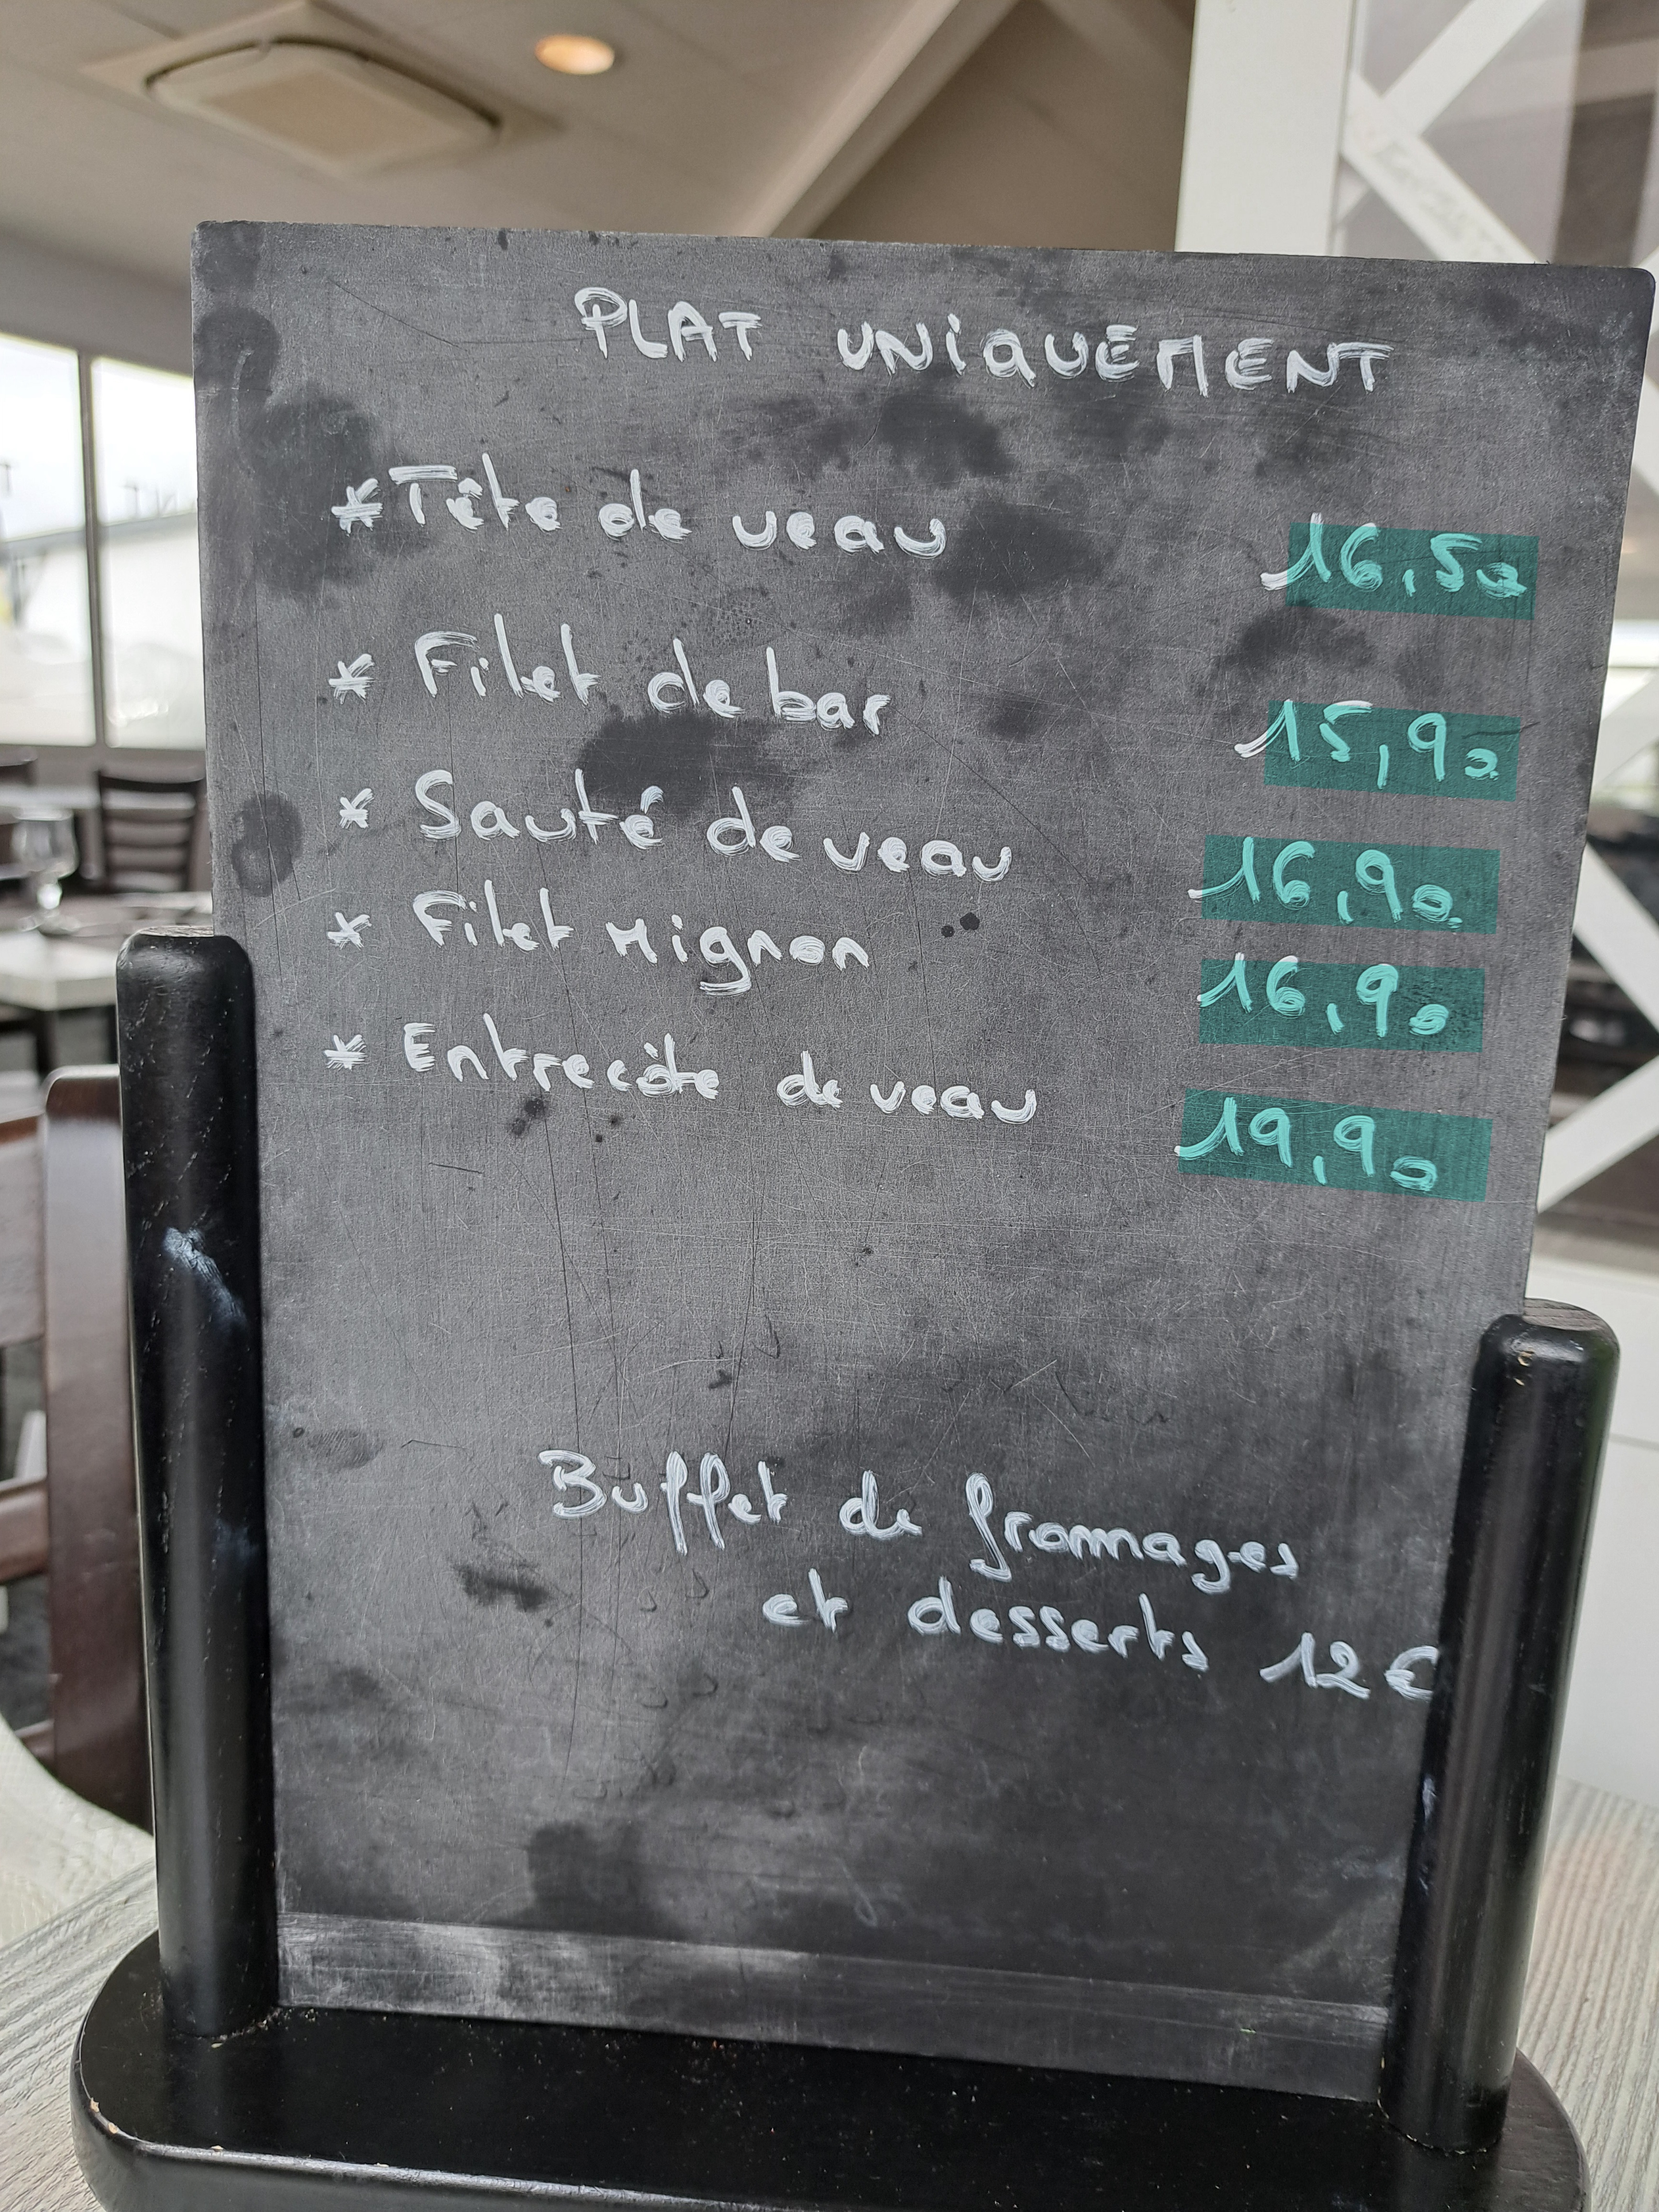 PLAT UNIQUEMENT
* Tête de veau 16,50
* Filet de bar 15,90
* Sauté de veau 16,90
* Filet Mignon 16,90
* Entrecôte de veau 19,90
Buffet de fromages
et desserts 12€